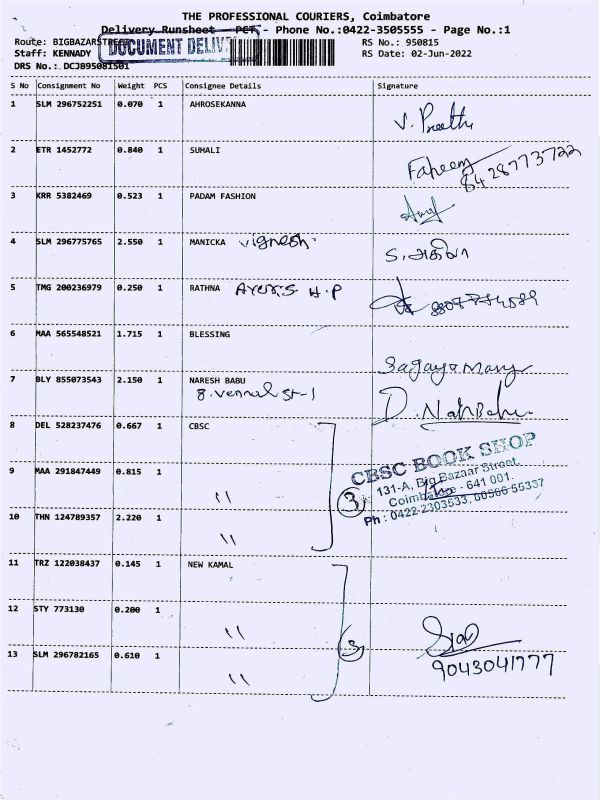 THE PROFESSIONAL COURIERS, Coimbatore
Delivery Runsheet - PCT - Phone No.:0422-3505555 - Page No.:1
Route: BIGBAZARSTREET DOCUMENT DELIV RS No.: 950815
Staff: KENNADY RS Date: 02-Jun-2022
DRS No.: DCJB95081501
S No Consignment No Weight PCS Consignee Details Signature
1 SLM 296752251 0.070 1 AHROSEKANNA V. Preethi
2 ETR 1452772 0.840 1 SUHALI Faheem
8428773722
3 KRR 5382469 0.523 1 PADAM FASHION
4 SLM 296775765 2.550 1 MANICKA Vignesh. S. அகிலா
5 TMG 200236979 0.250 1 RATHNA H.P
6 MAA 565548521 1.715 1 BLESSING Sagayamary
7 BLY 855073543 2.150 1 NARESH BABU
8. Vennal St-1
8 DEL 528237476 0.667 1 CBSC
CBSC BOOK SHOP
131-A, Big Bazaar Street,
Coimbatore - 641 001.
Ph : 0422-2303533,
9 MAA 291847449 0.815 1 " 3
10 THN 124789357 2.220 1 "
11 TRZ 122038437 0.145 1 NEW KAMAL
12 STY 773130 0.200 1 " 3
13 SLM 296782165 0.610 1 " 9043041777